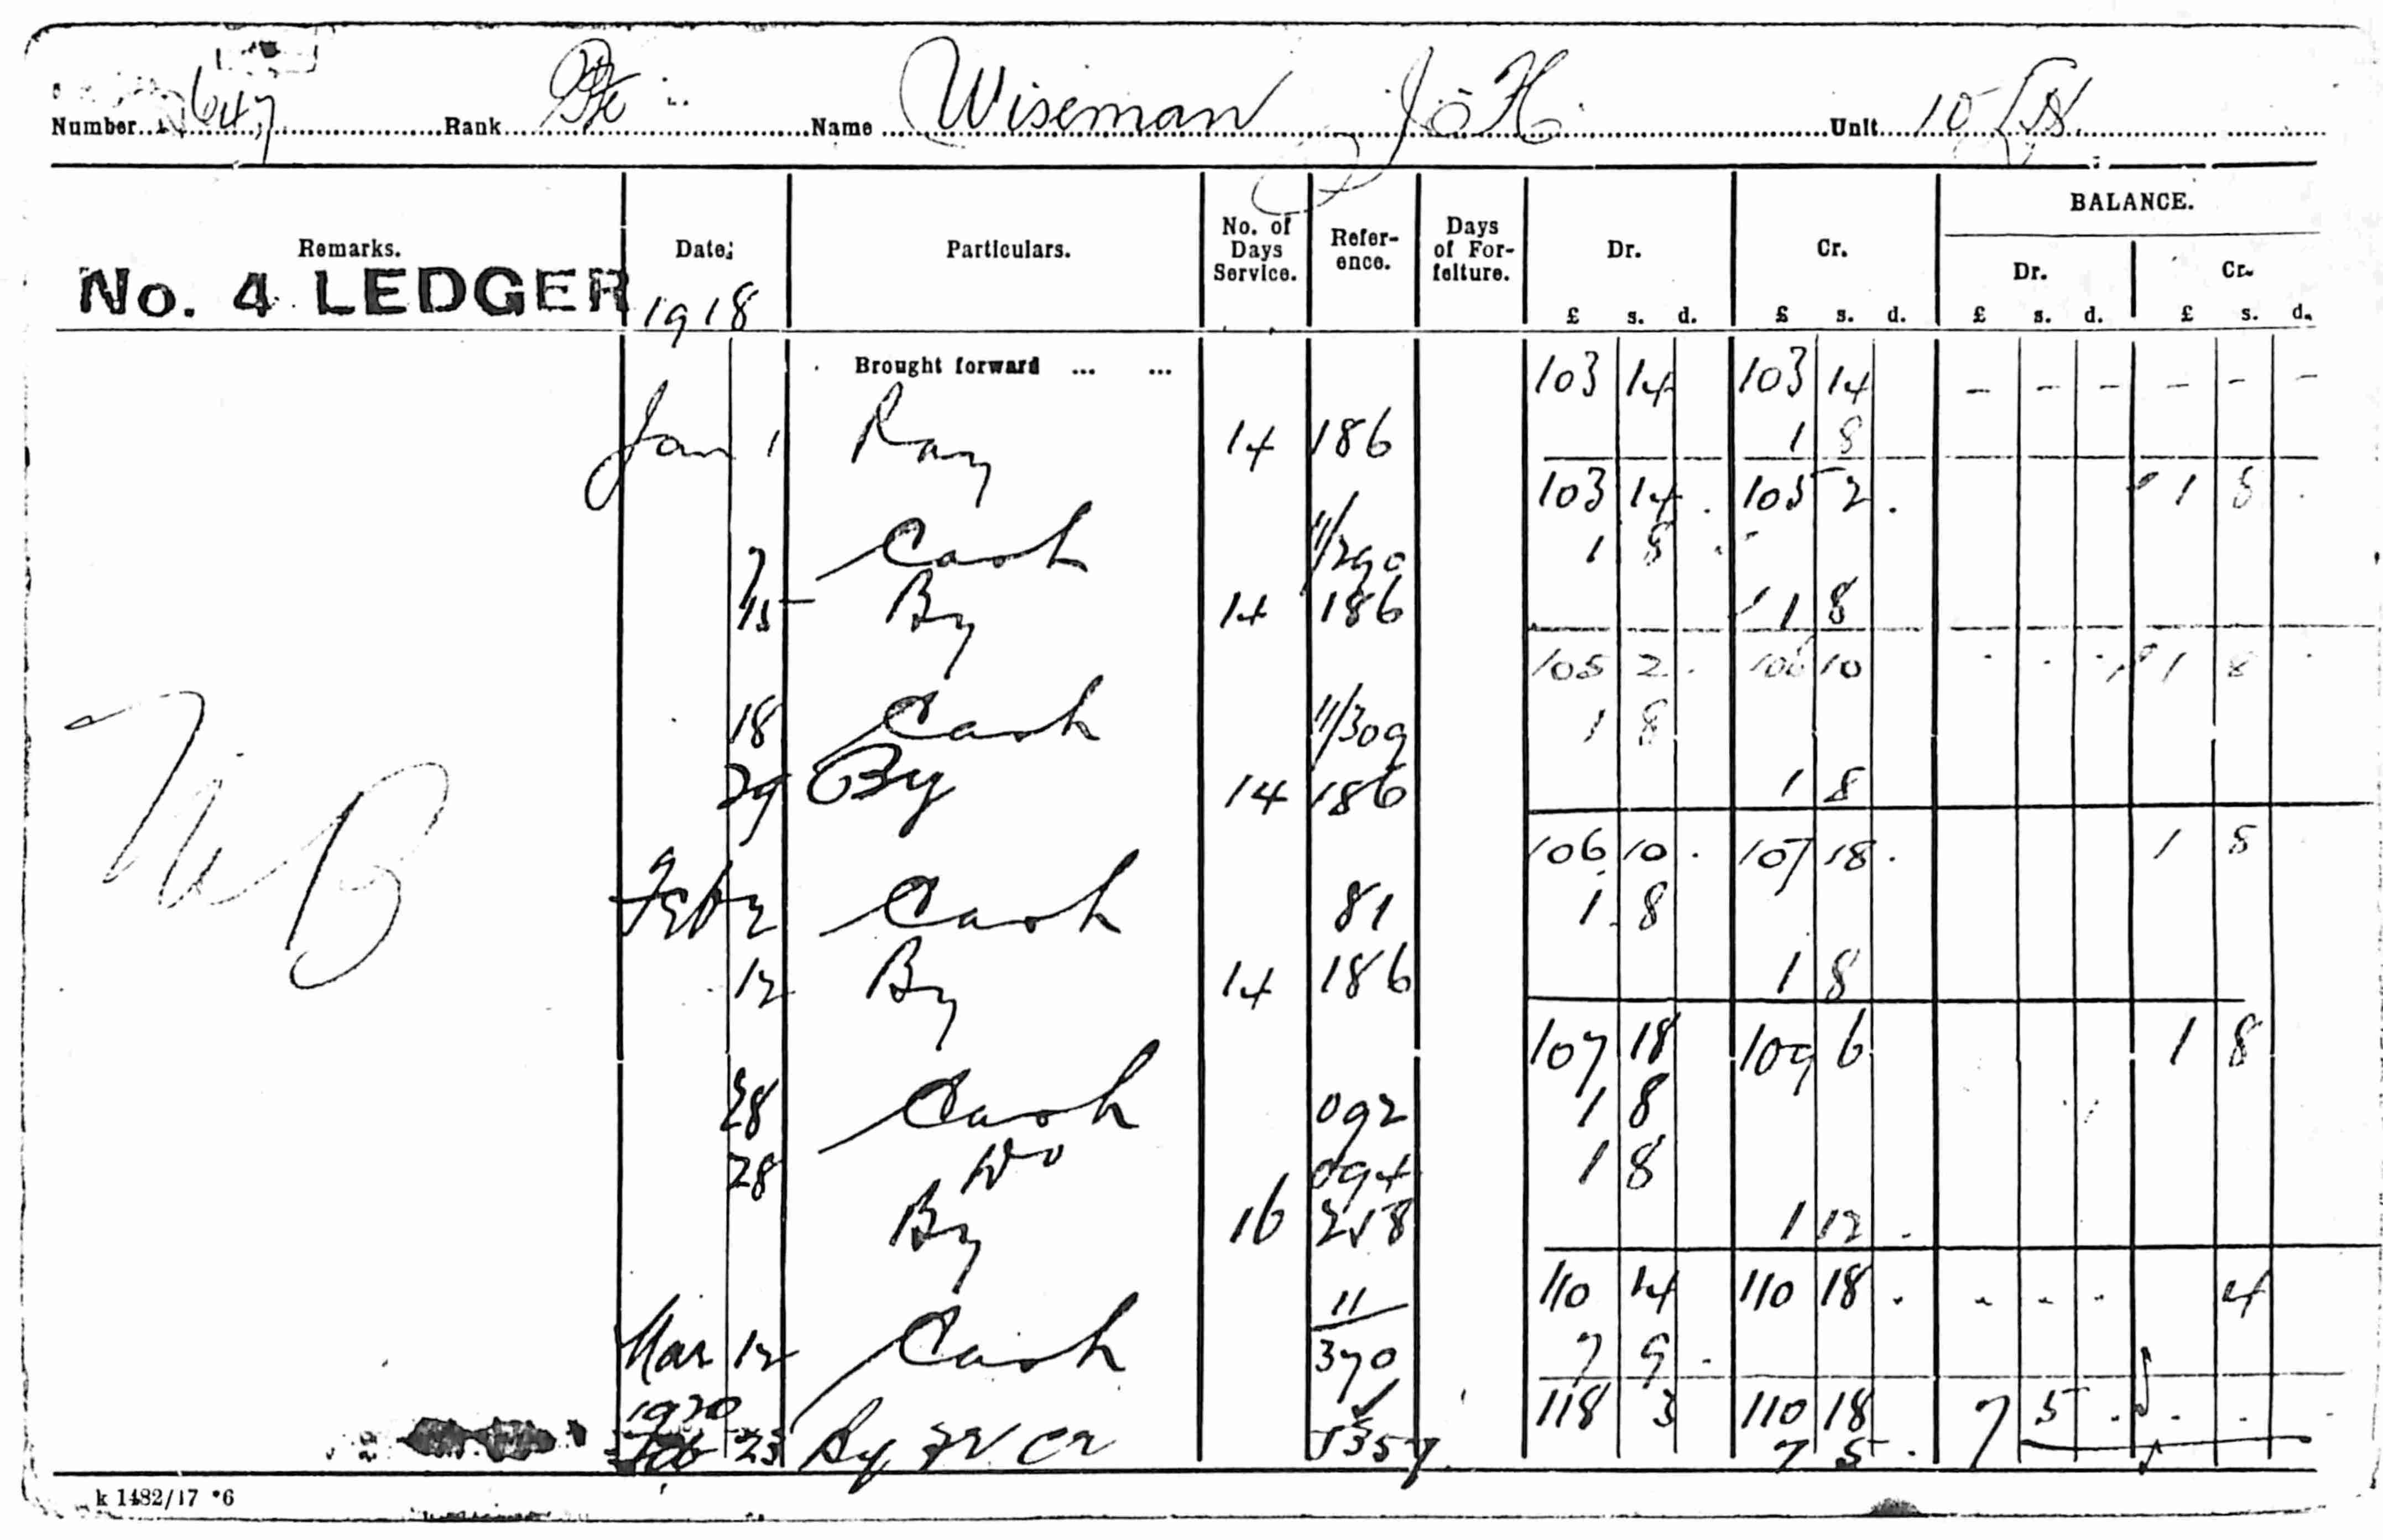 Number 647 Rank Pte Name Wiseman J H Unit 10
BALANCE.
Remarks. Date. Particulars. No. of Days Service. Refer-ence. Days of For-feiture. Dr. Cr. Dr. Cr.
No. 4 LEDGER 1918 £ s. d. £ s. d. £ s. d. £ s. d.
Brought forward ... ... 103 14 103 14 - - - - - -
Jan 1 14 186 1 8
103 14 . 105 2 . 1 8 .
7 Cash 11/290 1 8
15 By 14 186 1 8
105 2 . 106 10 . . . 1 8 .
18 Cash 11/309 1 8
29 By 14 186 1 8
106 10 . 107 18 . 1 8
Feby 2 Cash 81 1 8
12 By 14 186 1 8
107 18 109 6 1 8
28 Cash 092 1 8
28 Do 094 1 8
By 16 258 1 12 .
110 14 110 18 . - - - 4
Mar 12 Cash 11/370 7 9 .
118 3 110 18 7 5 . . . .
1920
Feb 23 By Cr 5357 7 5 .
k 1482/17 *6